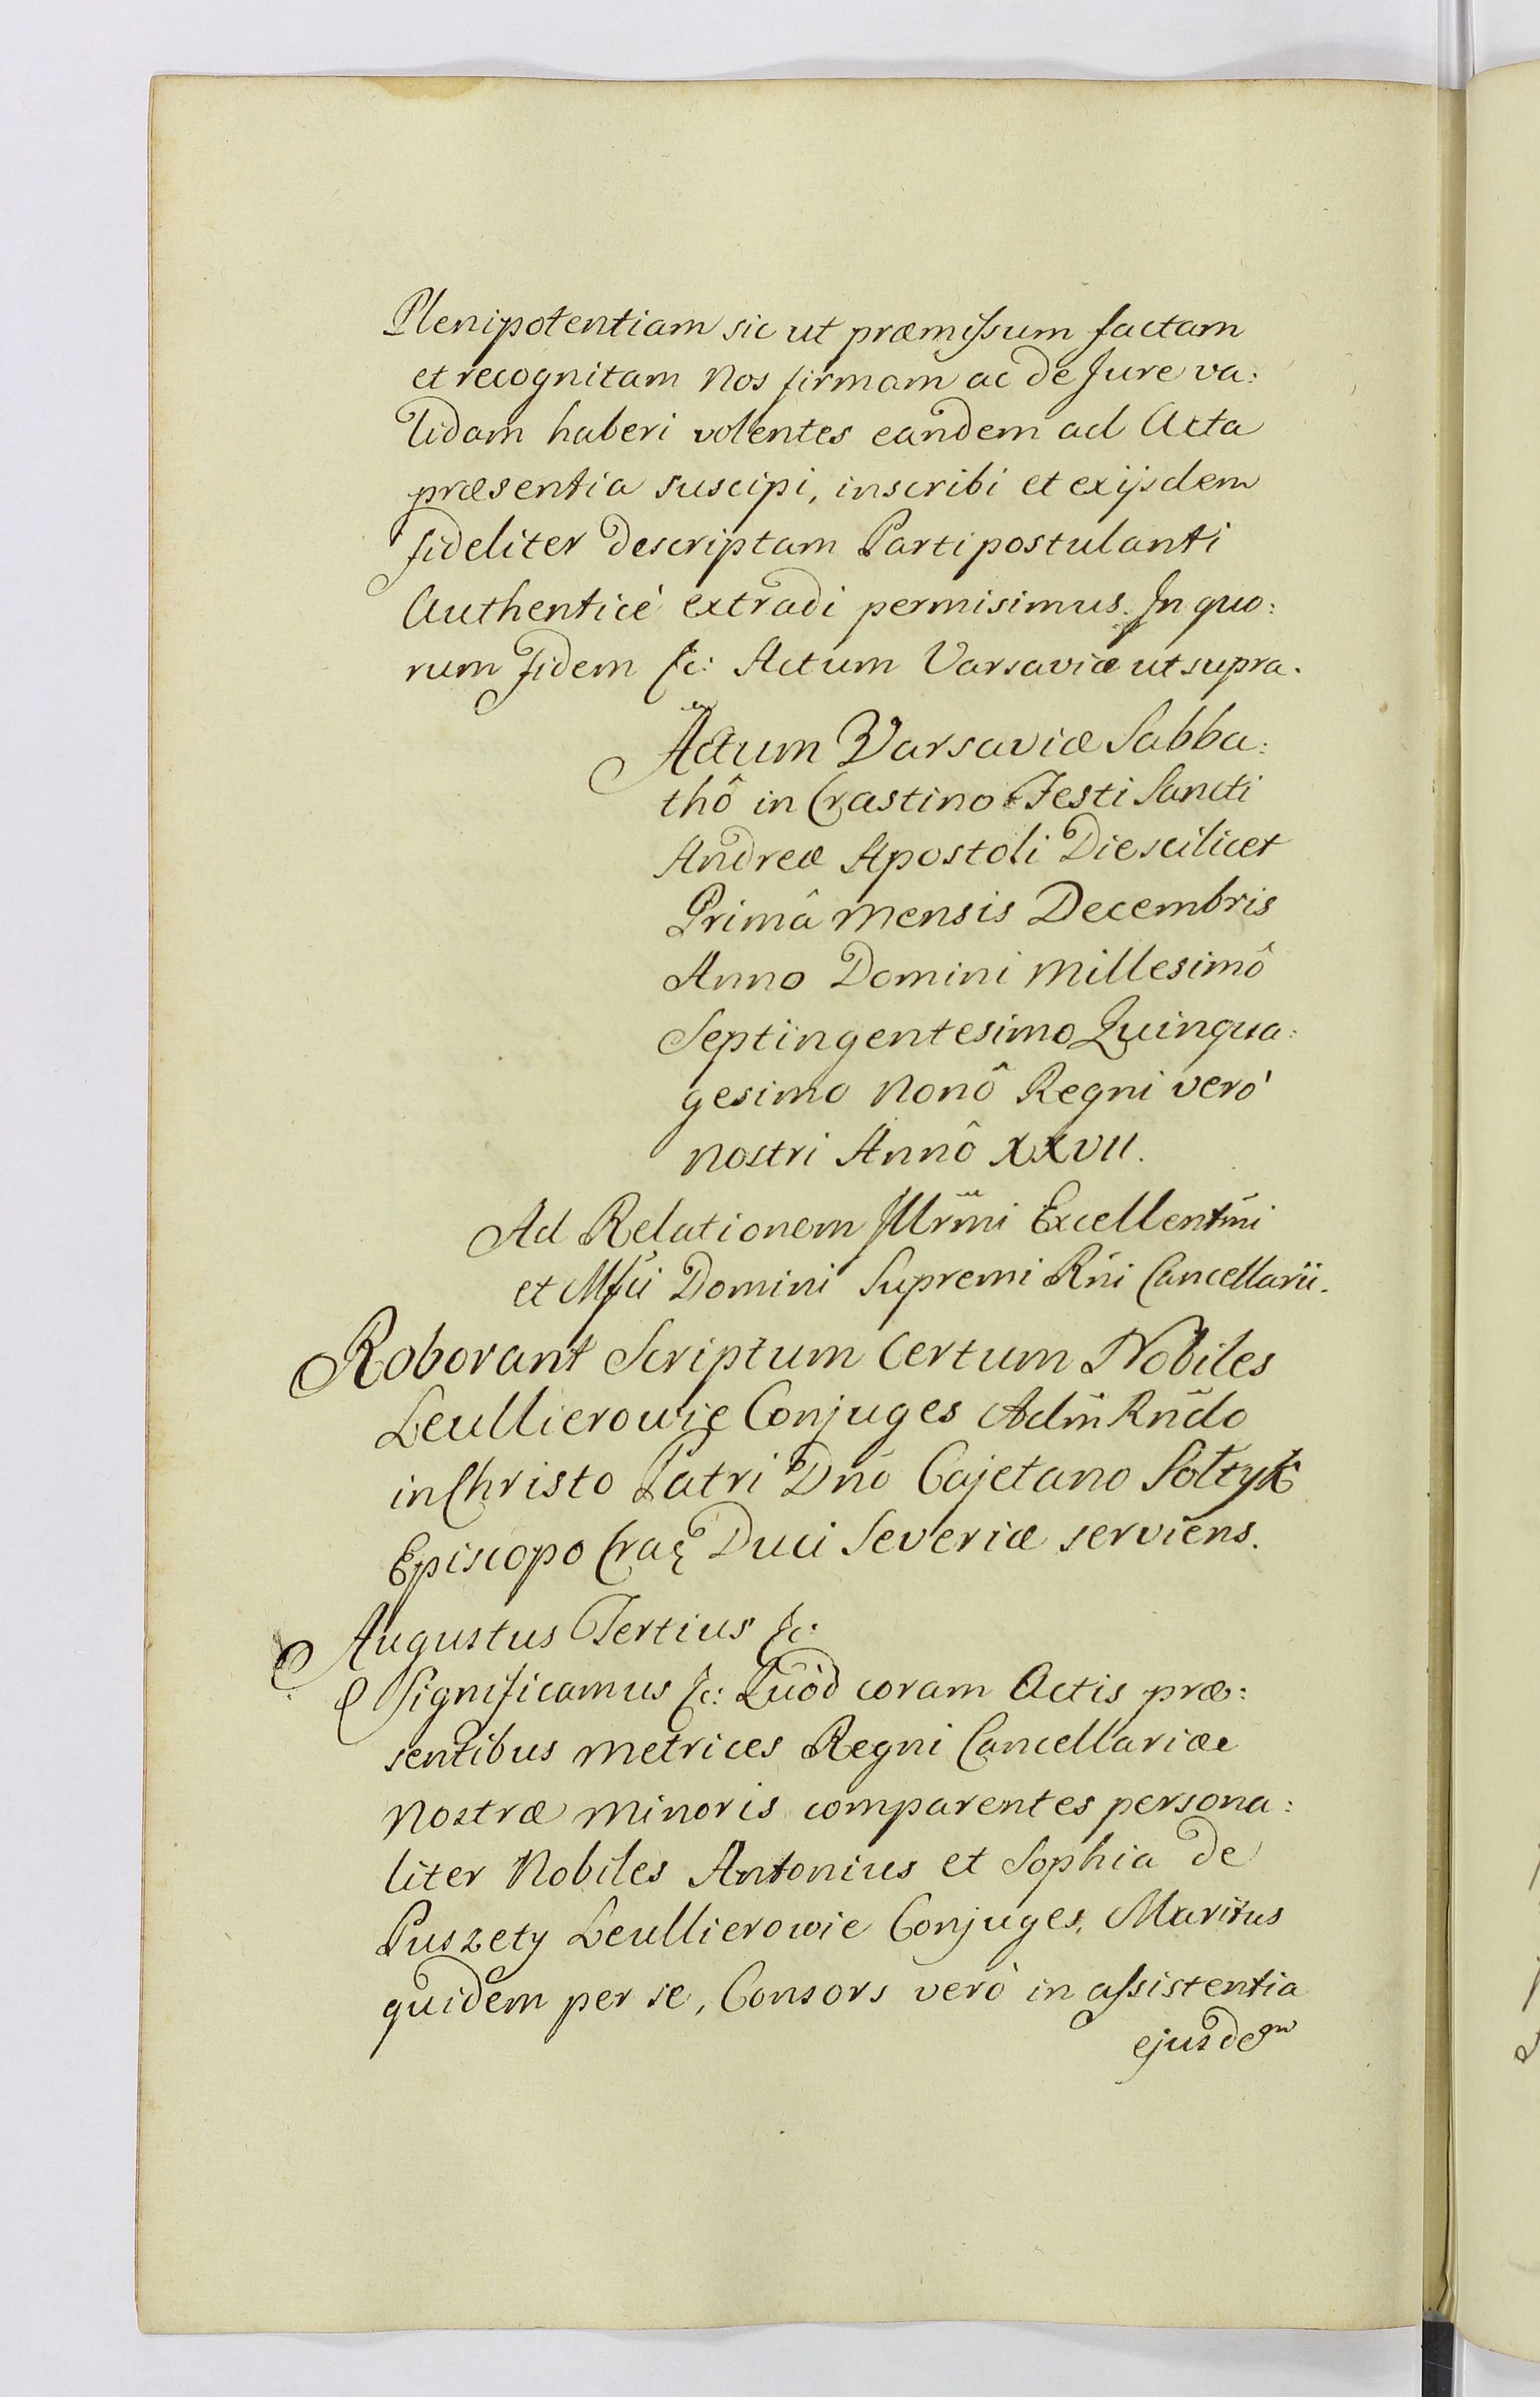 Plenipotentiam sic ut præmissum factam
et recognitam Nos firmam ac de Jure va:
lidam haberi volentes eandem ad Acta
præsentia suscipi, inscribi et exijsdem
fideliter descriptam Parti postulanti
Authenticè extradi permisimus. In quo:
rum fidem &c: Actum Varsaviæ ut supra.
Actum Varsaviæ Sabba:
thô in Crastino Festi Sancti
Andreæ Apostoli Die scilicet
Primâ Mensis Decembris
Anno Domini Millesimô
Septingentesimo Quinqua:
gesimo Nonô Regni verò
nostri Annô XXVII.
Ad Relationem Illrm̃i Excellentm̃i
et Mfĩci Domini Supremi Rñi Cancellarii.
Roborant Scriptum Certum Nobiles
Leullierowie Conjuges Adm̃ Rñdo
in Christo Patri Dño Cajetano Sołtyk
Episcopo Crac̨ Duci Severiæ serviens.
Augustus Tertius &c:
Significamus &c: Quòd coram Actis præ:
sentibus Metrices Regni Cancellariæ
Nostræ Minoris comparentes persona:
liter Nobiles Antonius et Sophia de
Puszety Leullierowie Conjuges, Maritus
quidem per se, Consors verò in assistentia
ejusdem